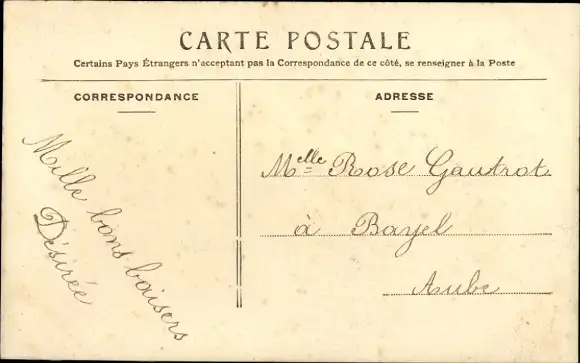 CARTE POSTALE
Certains Pays Étrangers n'acceptant pas la Correspondance de ce côté, se renseigner à la Poste
CORRESPONDANCE
ADRESSE
Mille bons baisers
Désirée
Melle Rose Gautrot
à Bayel
Aube